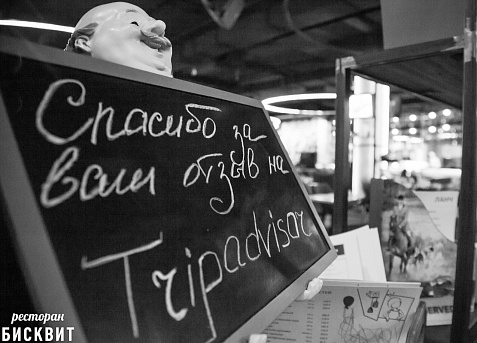 Спасибо за
вам отзыв на
Tripadvisor
ресторан
БИСКВИТ